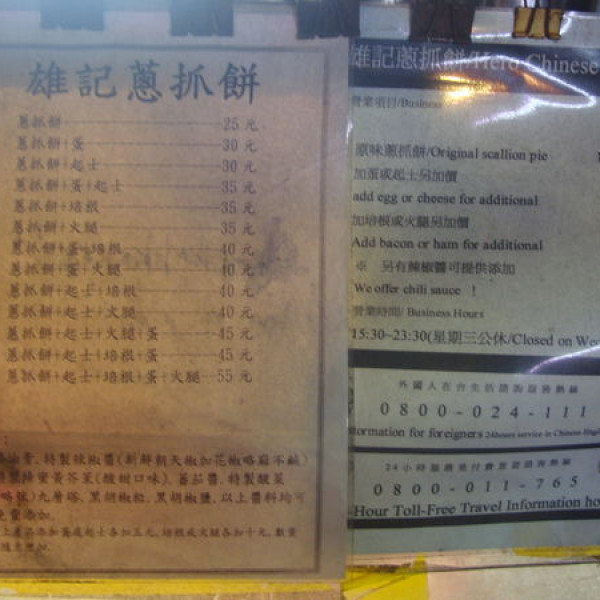 雄記蔥抓餅
蔥抓餅 25元
蔥抓餅+蛋 30元
蔥抓餅+起士 30元
蔥抓餅+蛋+起士 35元
蔥抓餅+培根 35元
蔥抓餅+火腿 35元
蔥抓餅+蛋+培根 40元
蔥抓餅+蛋+火腿 40元
蔥抓餅+起士+培根 40元
蔥抓餅+起士+火腿 40元
蔥抓餅+起士+火腿+蛋 45元
蔥抓餅+起士+培根+蛋 45元
蔥抓餅+起士+培根+蛋+火腿 55元
油膏,特製辣椒醬(新鮮朝天椒加花椒略麻不鹹)
蜂蜜黃芥茉(酸甜口味),蕃茄醬,特製酸菜
略辣)九層塔,黑胡椒粒,黑胡椒鹽,以上醬料均可
免費添加。
上產品添加蛋或起士各加五元,培根或火腿各加十元,數量
雄記蔥抓餅/Hero Chinese
營業項目/Business
原味蔥抓餅/Original scallion pie
加蛋或起士另加價
add egg or cheese for additional
加培根或火腿另加價
Add bacon or ham for additional
※ 另有辣椒醬可提供添加
We offer chili sauce !
營業時間/ Business Hours
15:30~23:30(星期三公休/Closed on We
外國人在台生活諮詢服務熱線
0800-024-111
formation for foreigners 24hours service in Chinese Engl
0800-011-765
-Hour Toll-Free Travel Information ho